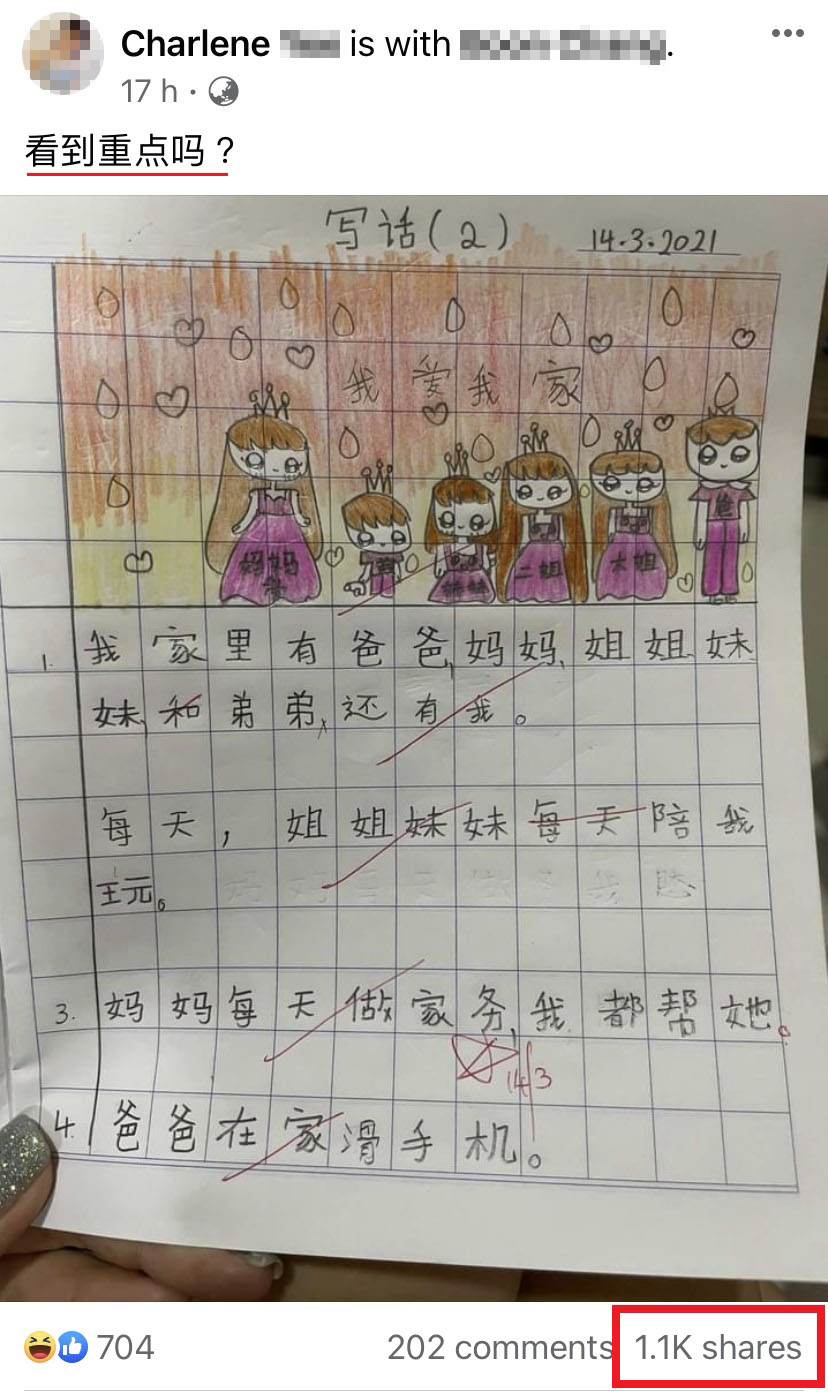 Charlene is with .
17 h ·
看到重点吗？
写话(2)
14.3.2021
我爱我家
妈妈
二姐
大姐
爸
1. 我家里有爸爸,妈妈、姐姐、妹
妹、和弟弟,还有我。
每天，姐姐妹妹每天陪我
玩。
3. 妈妈每天做家务,我都帮她。
14/3
4. 爸爸在家滑手机。
704
202 comments
1.1K shares